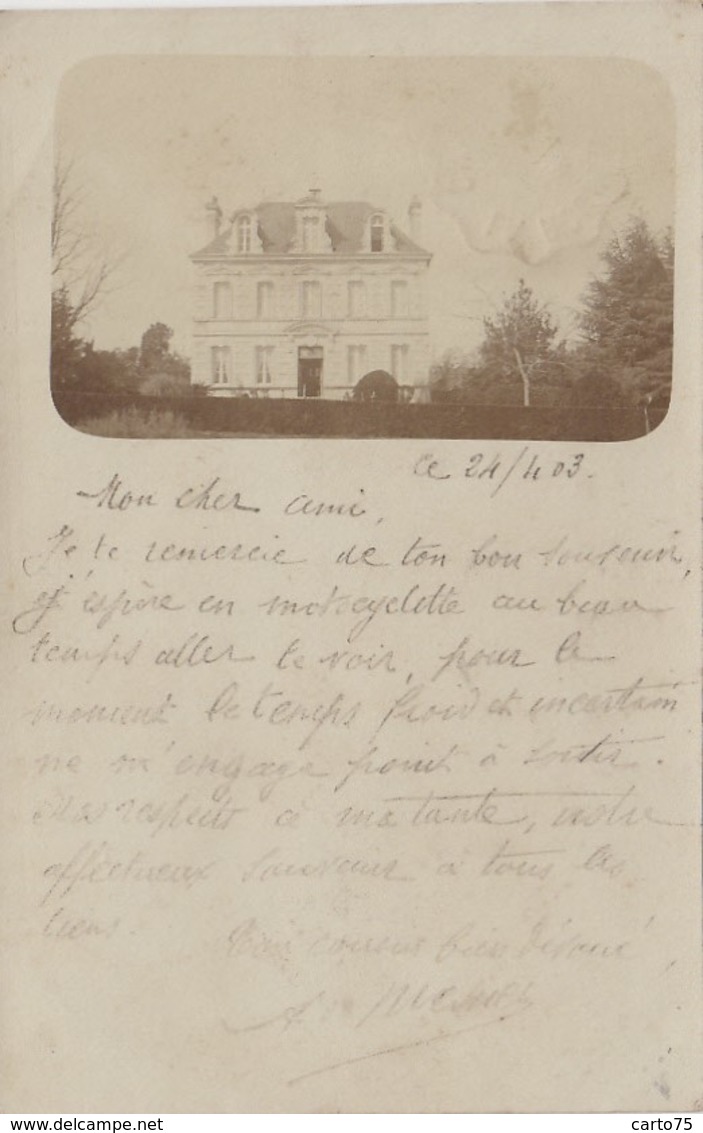 ce 24/4 03.
Mon cher ami,
Je te remercie de ton bon souvenir,
j'espère en motocyclette au beau
temps aller te voir, pour le
moment le temps froid et incertain
ne m'engage point à sortir.
Mes respects à ma tante, notre
affectueux souvenir à tous les
tiens.
Ton cousin bien dévoué
A
http://www.delcampe.net
carto75